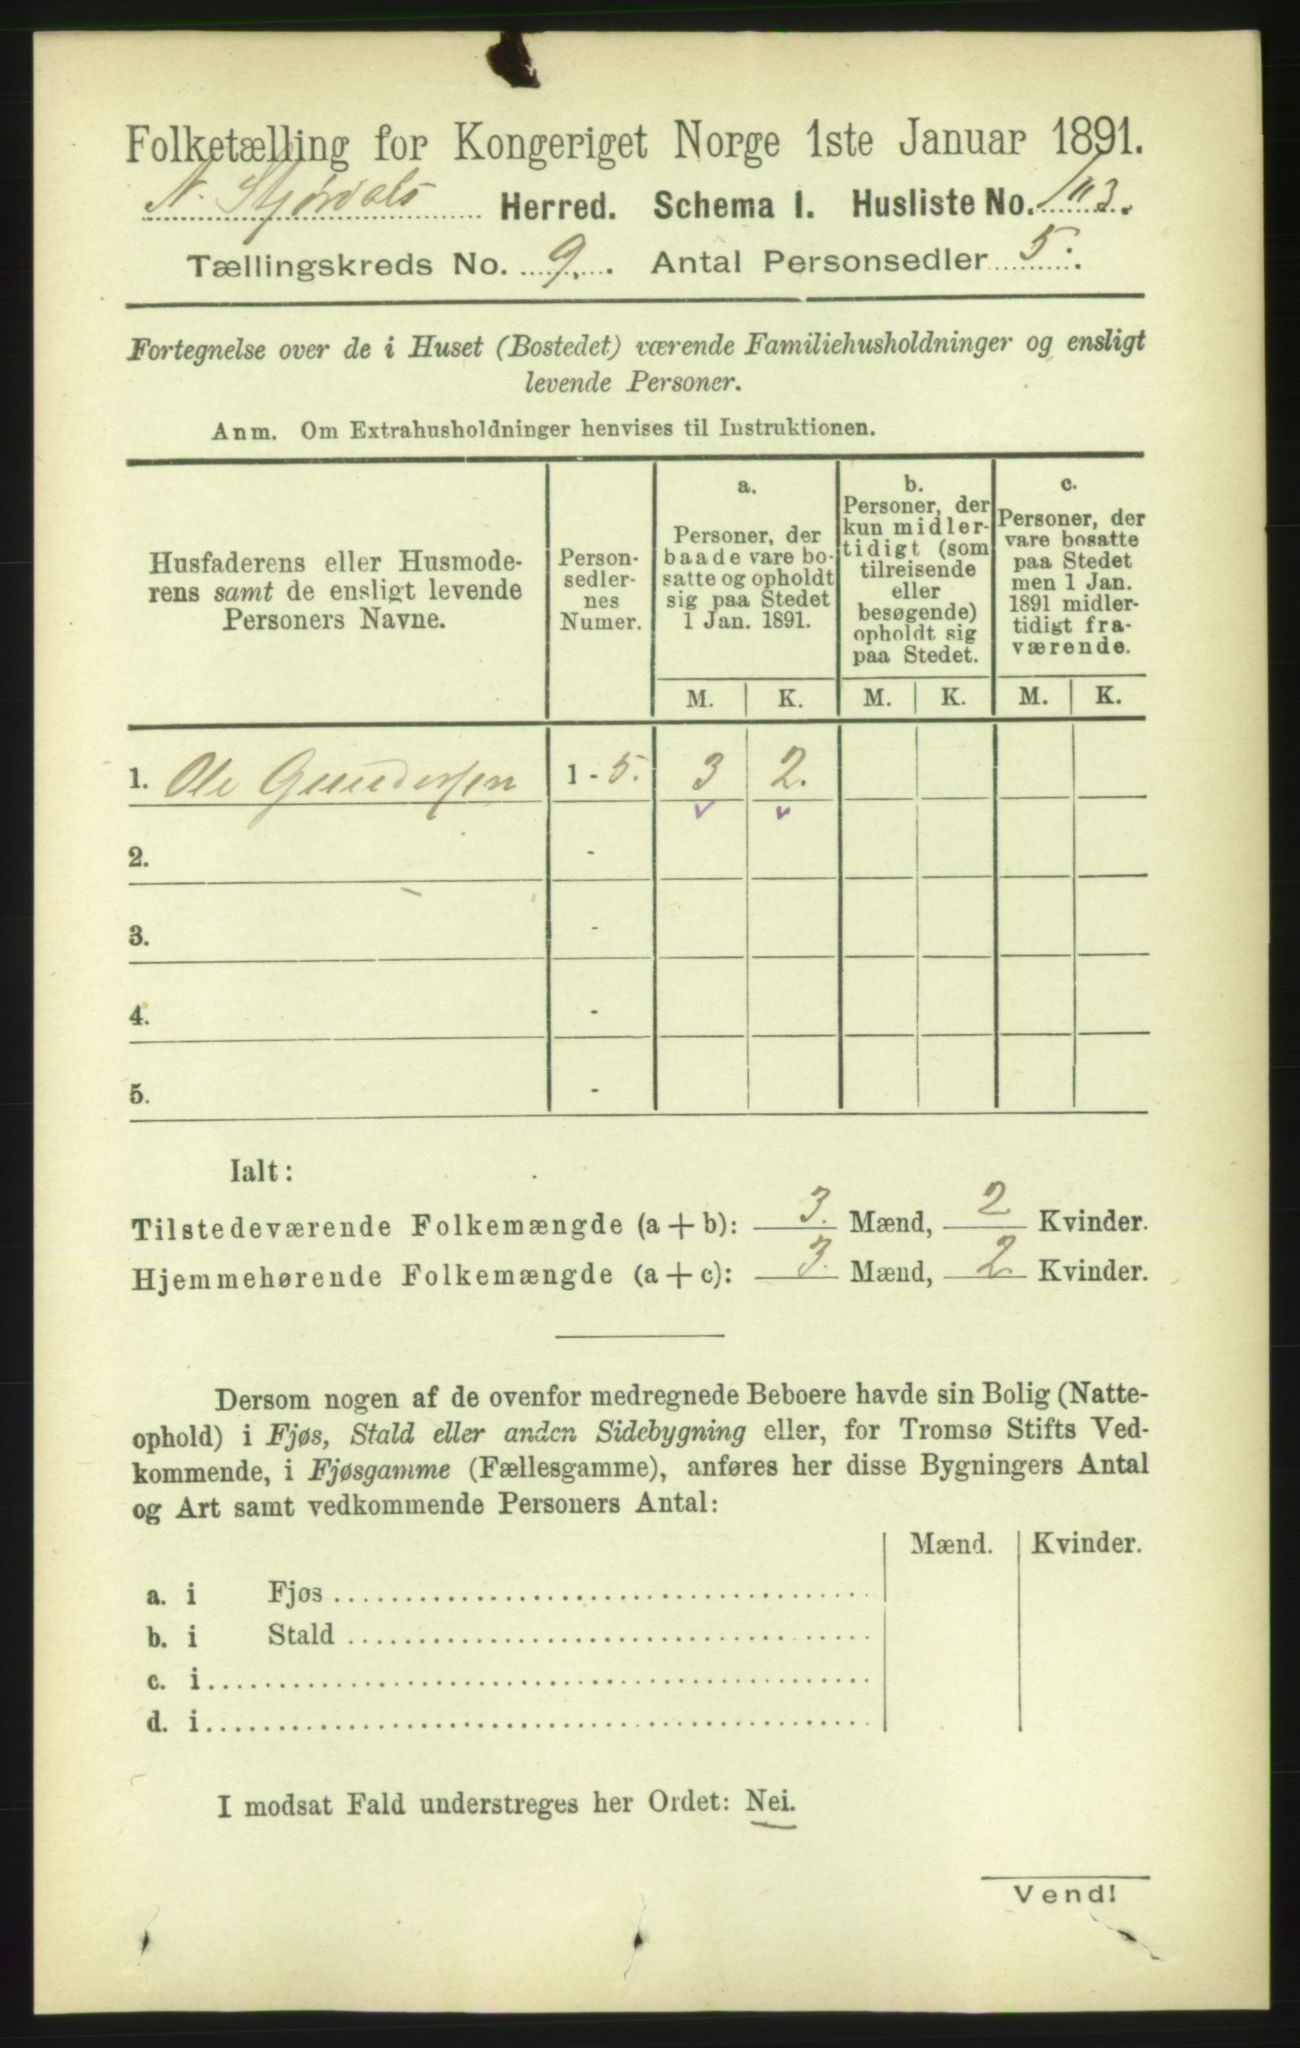 Folketælling for Kongeriget Norge 1ste Januar 1891.
N. Stjørdals Herred. Schema I. Husliste No. 113.
Tællingskreds No. 9. Antal Personsedler 5.
Fortegnelse over de i Huset (Bostedet) værende Familiehusholdninger og ensligt
levende Personer.
Anm. Om Extrahusholdninger henvises til Instruktionen.
Husfaderens eller Husmode-
rens samt de ensligt levende
Personers Navne.
Person-
sedler-
nes
Numer.
a.
Personer, der
baade vare bo-
satte og opholdt
sig paa Stedet
1 Jan. 1891.
b.
Personer, der
kun midler-
tidigt (som
tilreisende
eller
besøgende)
opholdt sig
paa Stedet.
c.
Personer, der
vare bosatte
paa Stedet
men 1 Jan.
1891 midler-
tidigt fra-
værende.
M. K. M. K. M. K.
1. Ole Gundersen 1 - 5. 3 2.
2. -
3. -
4. -
5. -
Ialt:
Tilstedeværende Folkemængde (a + b): 3. Mænd, 2 Kvinder.
Hjemmehørende Folkemængde (a + c): 3. Mænd, 2. Kvinder.
Dersom nogen af de ovenfor medregnede Beboere havde sin Bolig (Natte-
ophold) i Fjøs, Stald eller anden Sidebygning eller, for Tromsø Stifts Ved-
kommende, i Fjøsgamme (Fællesgamme), anføres her disse Bygningers Antal
og Art samt vedkommende Personers Antal:
Mænd. Kvinder.
a. i Fjøs
b. i Stald
c. i
d. i
I modsat Fald understreges her Ordet: Nei.
Vend!